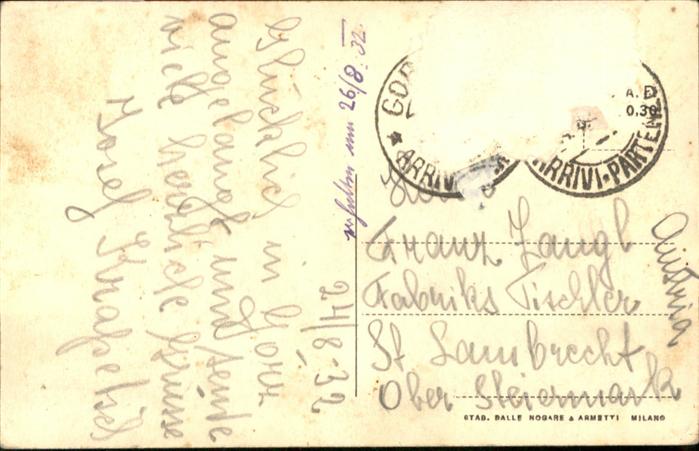 Glücklich in Görz
angelangt und sende
viele herzliche Grüsse
Josef
24/8.32
erhalten am 26/8.32.
ARRIVI
ARRIVI-PARTENZE
Herrn
Franz Zangl
Fabriks Tischler
St Lambrecht
Ober Steiermark
Austria
STAB. DALLE NOGARE & ARMETTI MILANO